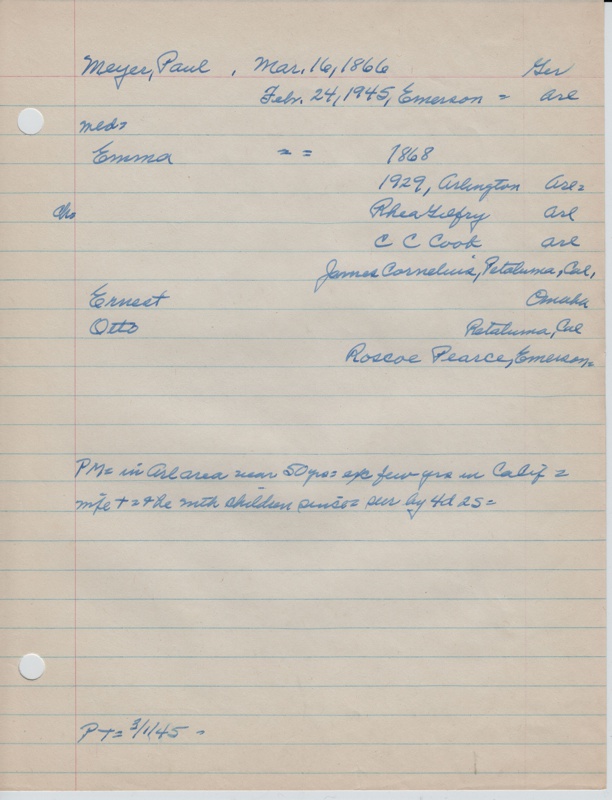 Meyer, Paul , Mar. 16, 1866 Ger
Febr. 24, 1945, Emerson = Arl
md=
Emma = = 1868
1929, Arlington Arl=
Chn Rhea Gilfry Arl
C C Cook Arl
James Cornelius, Petaluma, Cal,
Ernest Omaha
Otto Petaluma, Cal
Roscoe Pearce, Emerson=
PM= in Arl area near 50 yrs= exc few yrs in Calif =
wife + = & he with children since= sur by 4d 2s=
PT= 3/1/45 =